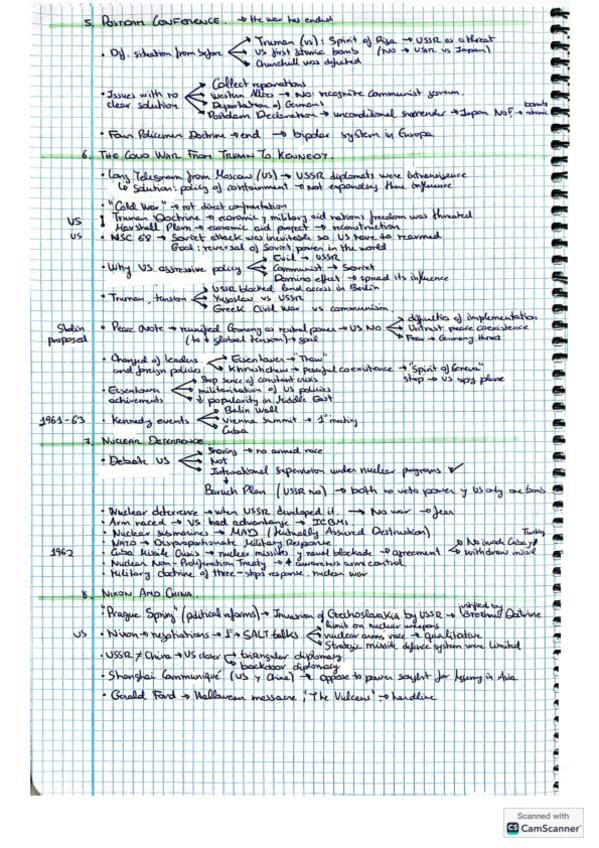 5. POSTDAM CONFERENCE. → the war has ended
Truman (US): Spirit of Riga → USSR as a threat
• Dif. situation from before US first atomic bomb (No → USSR vs Japan)
Churchill was defeated
Collect reparations
• Issues with no Western Allies → No recognize communist govern.
clear solution Deportation of Germans
Postdam Declaration → unconditional surrender → Japan No? → atomic bombs
• Four Policemen Doctrine → end → bipolar system in Europa
6. THE COLD WAR FROM TRUMAN TO KENNEDY.
• Long Telegram from Moscow (US) → USSR diplomats were intransigence
↳ Solution: policy of containment → not expanding their influence
• "Cold War" → not direct confrontation
US Truman Doctrine → economic y military aid nations freedom was threated
Marshall Plan → economic aid project → reconstruction
US • NSC 68 → Soviet attack was inevitable so US have to rearmed
Goal: reversal of Soviet power in the world
Evil → USSR
• Why US aggressive policy Communist → Soviet
Domino effect → spread its influence
USSR blocked land access in Berlin
• Truman, tension Yugoslav vs USSR
Greek Civil War vs communism
Stalin proposed • Peace Note → reunified Germany as neutral power → US No
(to ↓ global tension) → goal
difficulties of implementation
Untrust peace coexistence
Fear → Germany threat
• Changed of leaders Eisenhower → "Thaw"
and foreign policies Khrushchev → peaceful coexistence → "Spirit of Geneva"
stop → US spy plane
Stop sense of constant crisis
• Eisenhower militarization of US policies
achivements ↓ popularity in Middle East
Berlin Wall
1961-63 • Kennedy events Vienna Summit → 1º meeting
Cuba
7. NUCLEAR DETERRENCE
Sharing → no armed race
• Debate US Not
International supervision under nuclear programs ✓
Baruch Plan (USSR no) → both no veto power y US only one bomb
• Nuclear deterrence → when USSR developed it. → No war → fear
• Arm raced → US had advantage → ICBMs
• Nuclear submarines → MAD (Mutually Assured Destruction)
• NATO → Disproportionate Military Response
1962 • Cuba Missile Crisis → nuclear missiles y naval blockade → agreement
No invade Cuba y Turkey
withdraw missil
• Nuclear Non-Proliferation Treaty → + awareness arm control
• Military doctrine of three-steps response, nuclear war
8. NIXON AND CHINA.
"Prague Spring" (political reforms) → Invasion of Czechoslaakia by USSR → justified by Brezhnev Doctrine
limit on nuclear weapons
US • Nixon → negotiations → I → SALT talks nuclear arms race → qualitative
Strategic missile defence system were limited
• USSR ≠ China → US closer triangular diplomacy
backdoor diplomacy
• Shanghai Communiqué (US y China) → oppose to power sought for hegemony in Asia
• Gerald Ford → Halloween massacre, "The Vulcans" → hardline
Scanned with
CS CamScanner